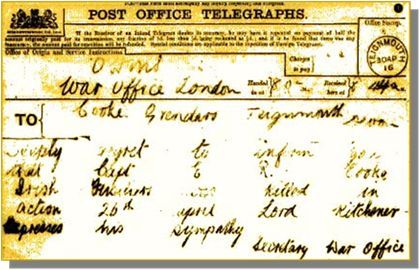 POST OFFICE TELEGRAPHS.
If the Receiver of an Inland Telegram doubts its accuracy, he may have it repeated on payment of half the
amount originally paid for its transmission, any fraction of 1d. less than ½d. being reckoned as ½d.; and if it be found that there was any
inaccuracy, the amount paid for repetition will be refunded. Special conditions are applicable to the repetition of Foreign Telegrams.
Office of Origin and Service Instructions.
Charges to pay
Office Stamp.
TEIGNMOUTH
30 AP
16
O H M S
War Office London
Handed in at
Received here at
TO
Cooke Grendars Teignmouth Devon
Deeply regret to inform you
that Capt E R. Cooke
Irish Fusiliers was killed in
action 26th april Lord Kitchener
expresses his sympathy
Secretary War Office